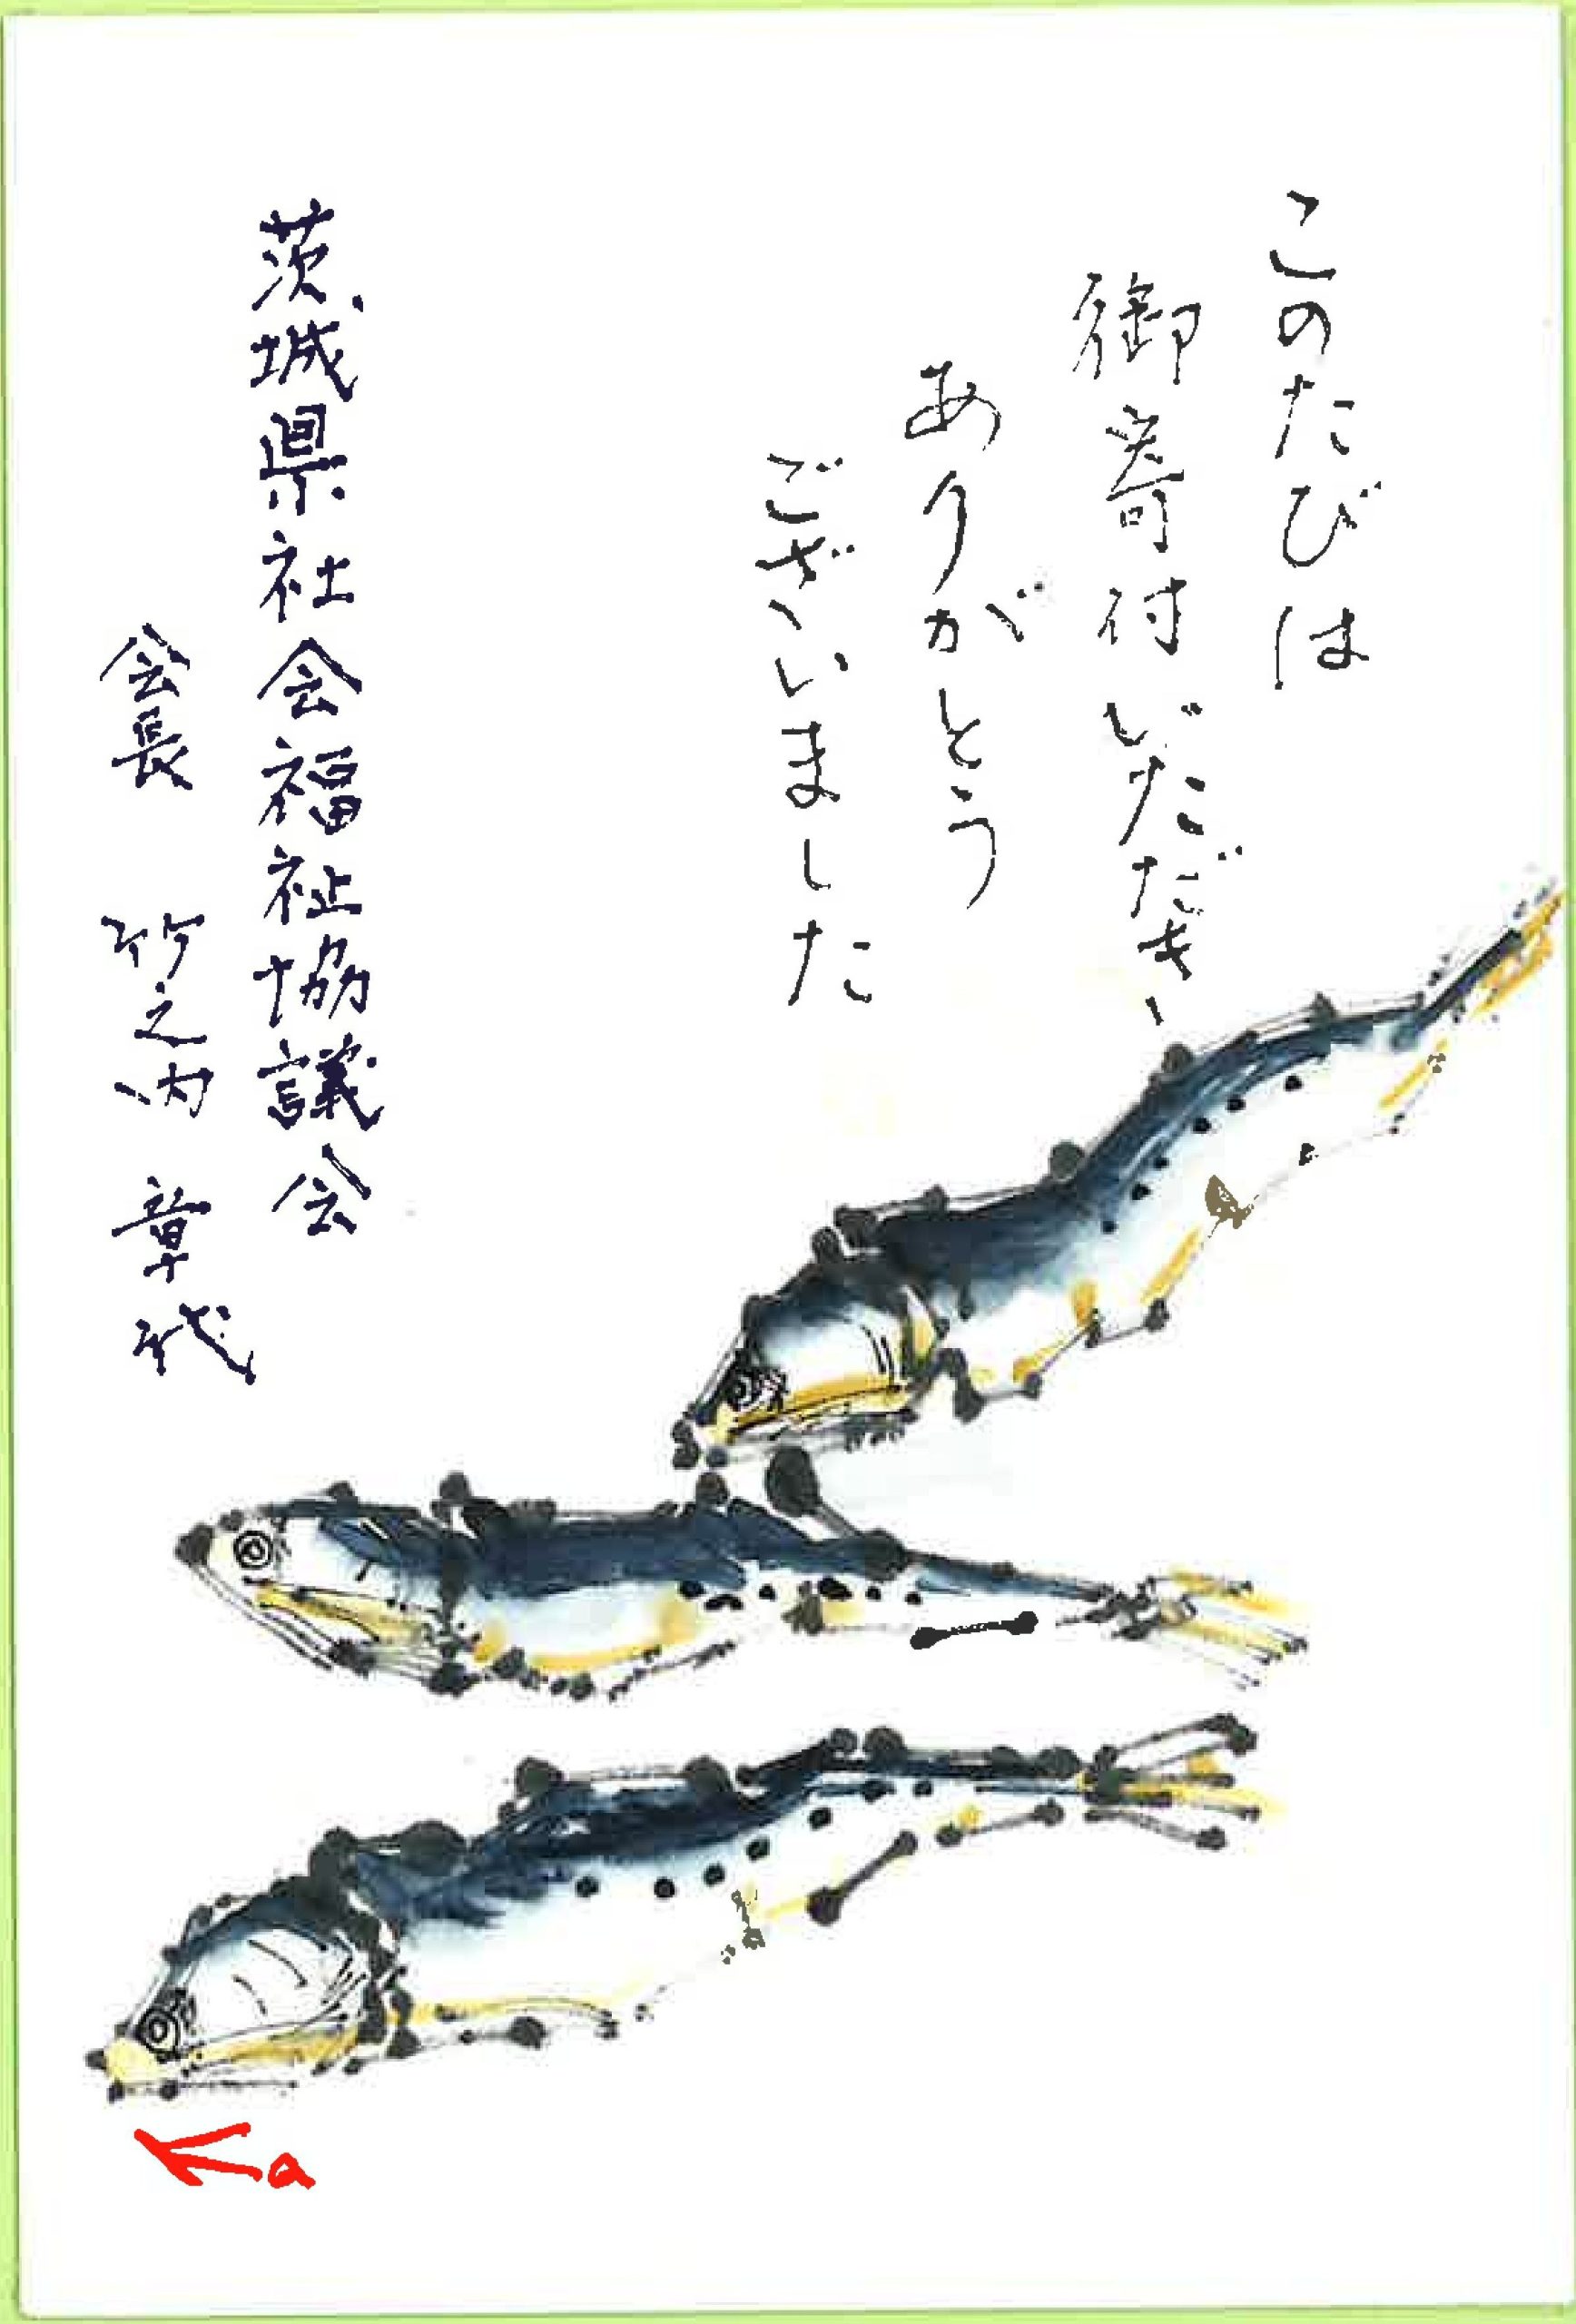 このたびは
御寄付いただき、
ありがとう
ございました
茨城県社会福祉協議会
会長 竹之内 章代